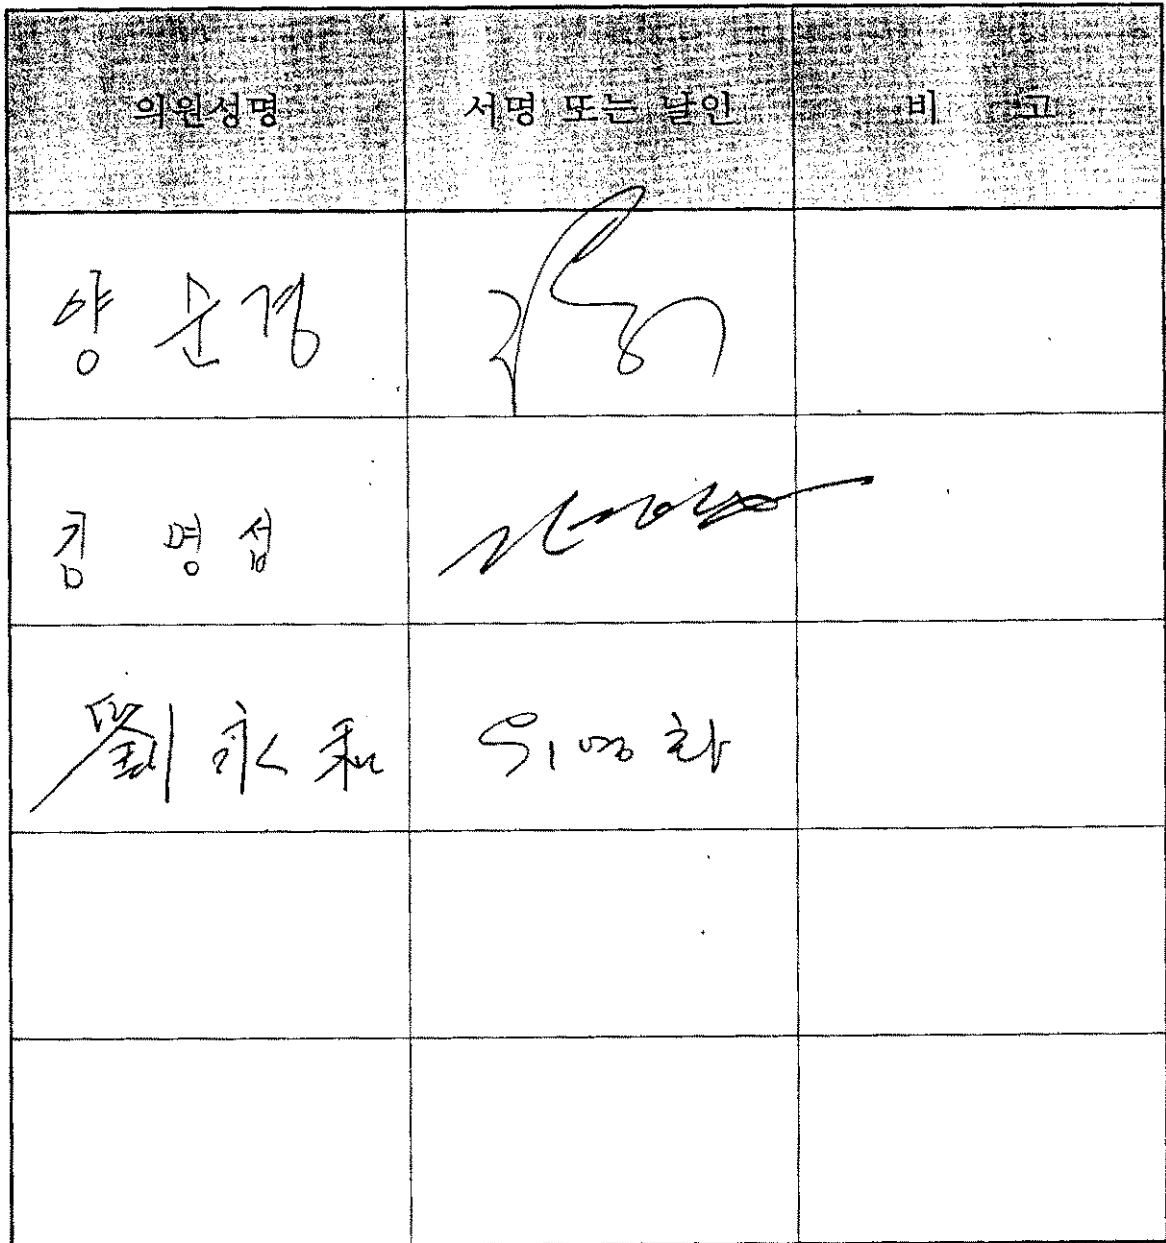 의원성명 서명 또는 날인 비 고
양 순 경
김 명 섭
劉 永 和 유영화